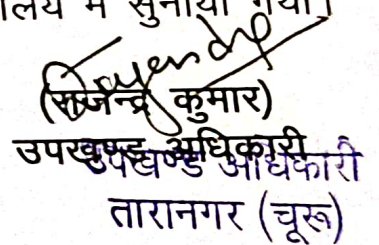 लय में सुनाया गया।
(राजेन्द्र कुमार)
उपखण्ड अधिकारी
उपखण्ड अधिकारी
तारानगर (चूरू)